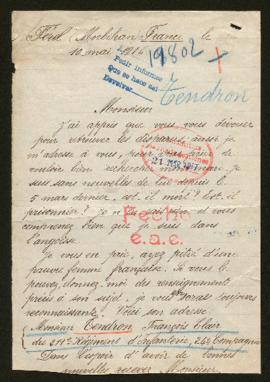 Férel Morbihan France le
10 mai 1916
19802 +
Pedir informes
Que se hace así
Devolver
Tendron
Monsieur
J'ai appris que vous vous dévouez
pour retrouver les disparus aussi je
m'adresse à vous, pour vous prier de
vouloir bien rechercher mon mari je
suis sans nouvelles de lui depuis le
5 mars dernier, est-il mort? est-il
prisonnier? je n'en sais rien et vous
comprenez bien que je suis dans
l'angoisse
Je vous en prie, ayez pitié d'une
pauvre femme française. Si vous le
pouvez, donnez moi des renseignements
précis à son sujet, je vous serai toujours
reconnaissante. Voici son adresse
Monsieur Tendron François Clair
du 211e Régiment d'infanterie, 24e Compagnie
Dans l'espoir d'avoir de bonnes
nouvelles recevez Monsieur